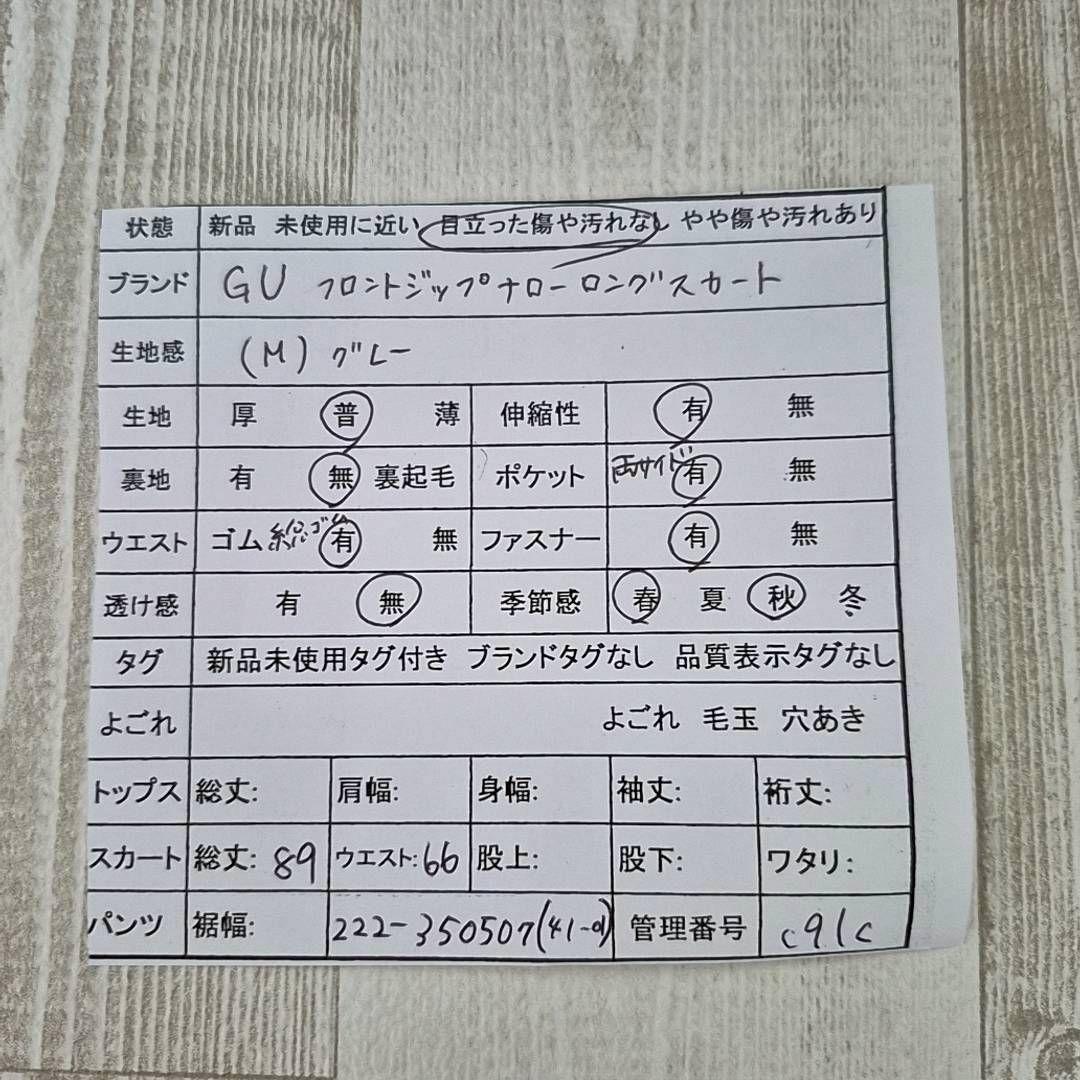 状態 新品 未使用に近い 目立った傷や汚れなし やや傷や汚れあり
ブランド GU フロントジップナローロングスカート
生地感 (M) グレー
生地 厚 普 薄 伸縮性 有 無
裏地 有 無 裏起毛 ポケット 両サイド 有 無
ウエスト ゴム 総ゴム 有 無 ファスナー 有 無
透け感 有 無 季節感 春 夏 秋 冬
タグ 新品未使用タグ付き ブランドタグなし 品質表示タグなし
よごれ よごれ 毛玉 穴あき
トップス 総丈: 肩幅: 身幅: 袖丈: 裄丈:
スカート 総丈: 89 ウエスト: 66 股上: 股下: ワタリ:
パンツ 裾幅: 222-350507(41-01) 管理番号 c91c